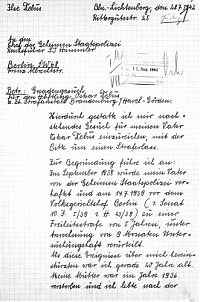 Ilse Zebus
Bln.-Lichtenberg, den 28.7.1942
Rittergutstr. 25
An den
Chef der Geheimen Staatspolizei
Berlin SW
Prinz Albrechtstr.
Betr.: Gnadengesuch
Oskar Zebus,
z. Zt. Strafanstalt Brandenburg/Havel-Görden.
Hierdurch gestatte ich mir nach-
stehendes Gesuch für meinen Vater
Oskar Zebus einzureichen, mit der
Bitte um einen Straferlass.
Zur Begründung führe ich an:
Im September 1938 wurde mein Vater
von der Geheimen Staatspolizei ver-
haftet und am 14.7.1939 vor dem
Volksgerichtshof Berlin (1. Senat
zu einer
Freiheitsstrafe von 5 Jahren, unter
Anrechnung von 9 Monaten Unter-
suchungshaft verurteilt.
Als diese Ereignisse über mich herein-
stürzten war ich gerade 18 Jahre alt.
Meine Mutter war im Jahre 1936
verstorben und ich lebte nach der